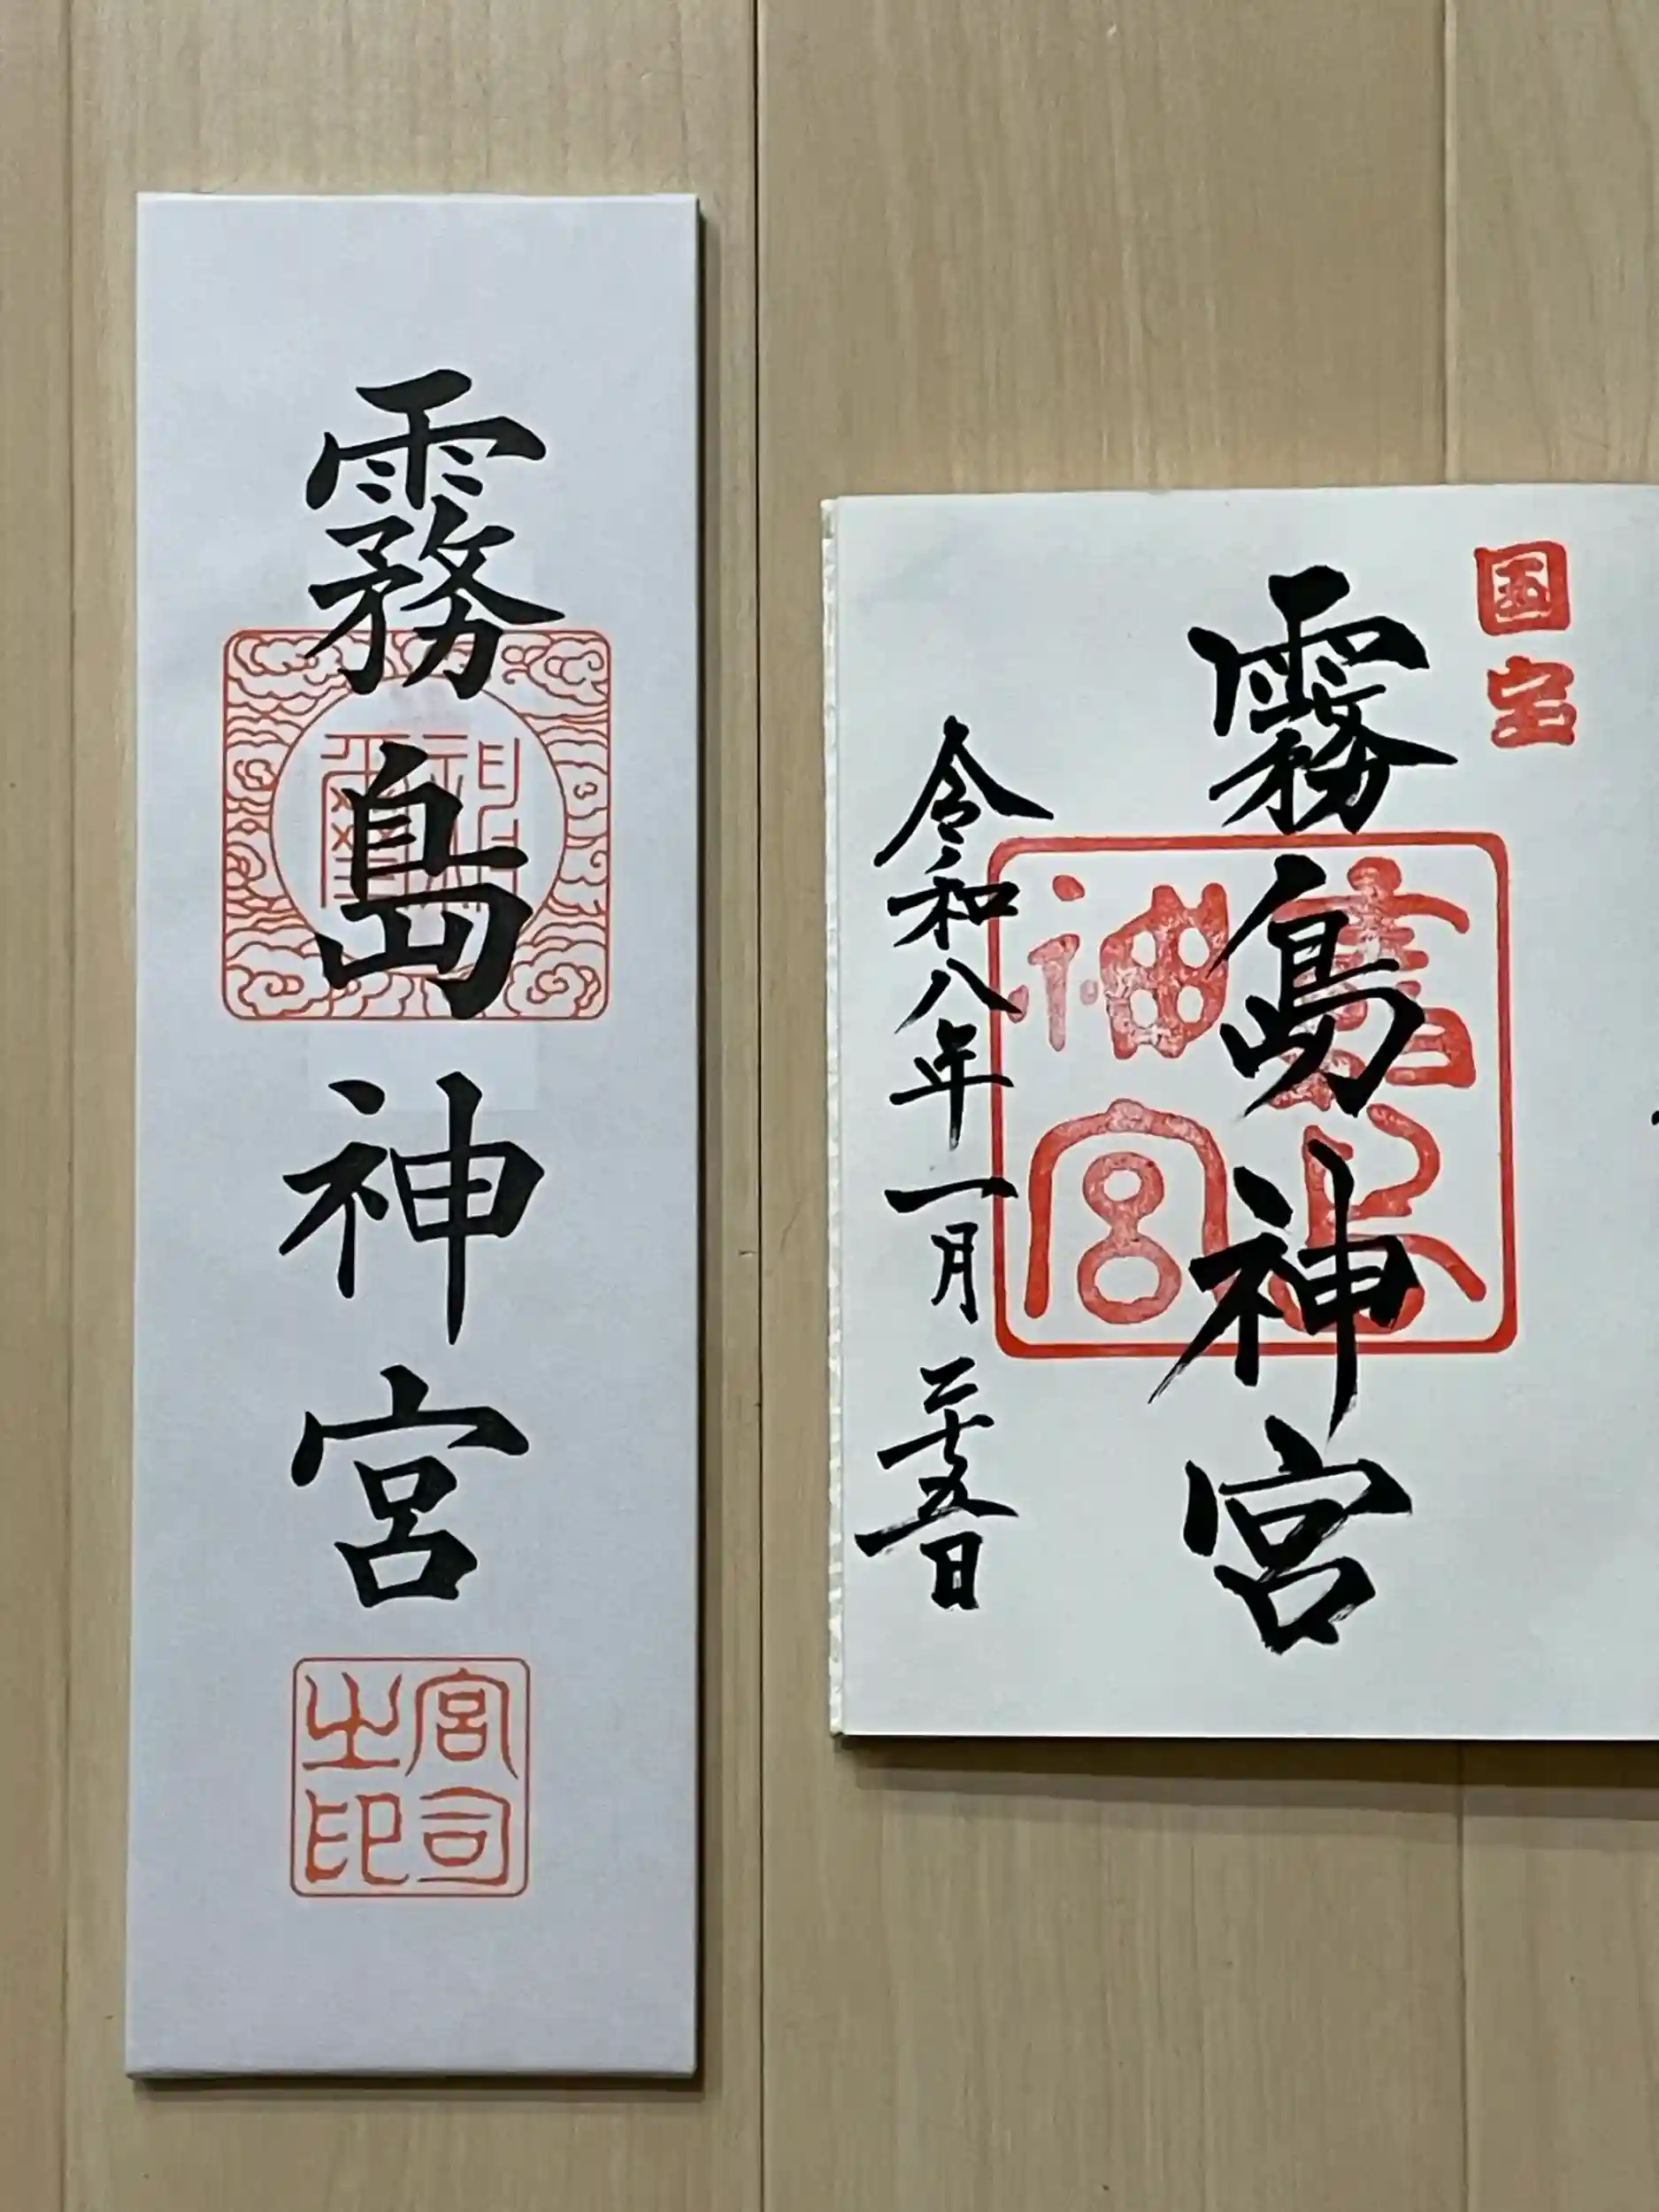 霧島神宮
宮司之印
国宝
霧島神宮
霧島神宮
令和八年一月二十五日